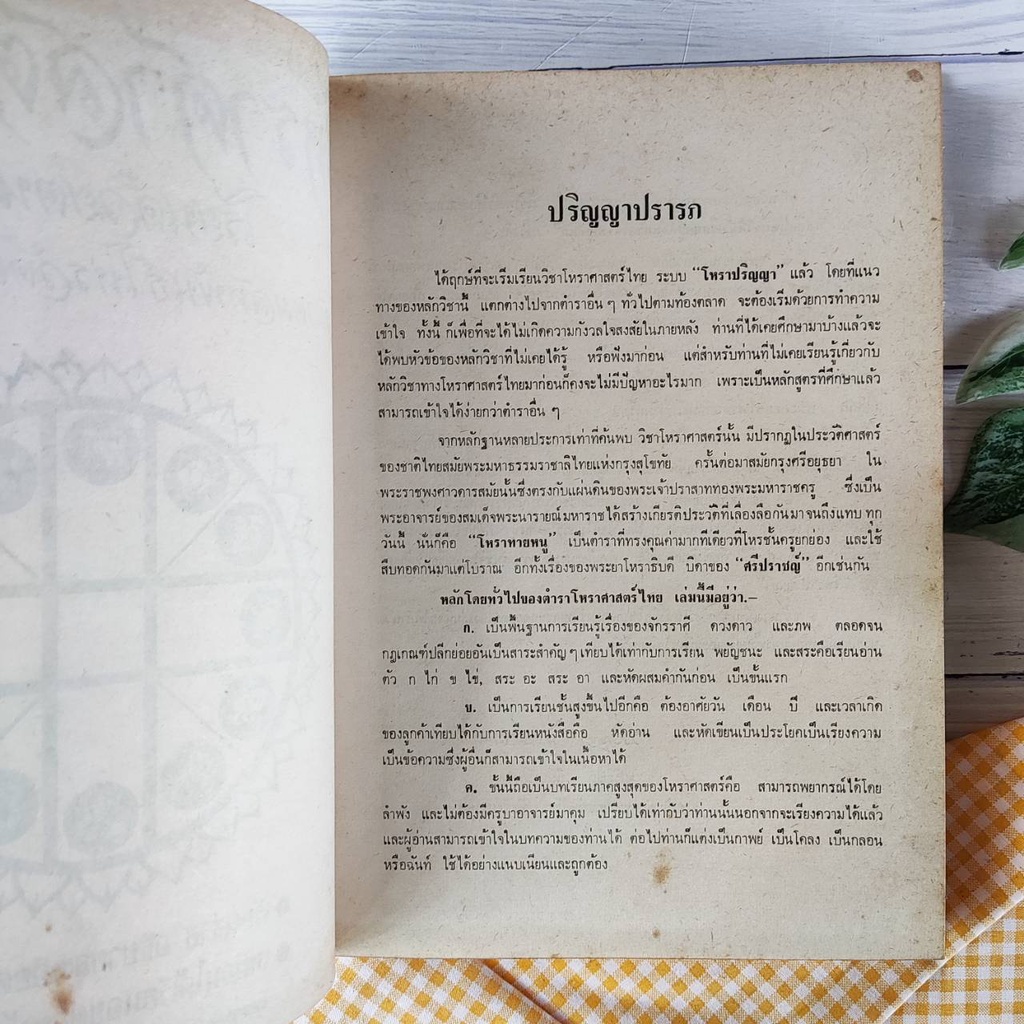 ปริญญาปรารภ
ได้ฤกษ์ที่จะเริ่มเรียนวิชาโหราศาสตร์ไทย ระบบ “โหราปริญญา” แล้ว โดยที่แนว
ทางของหลักวิชานี้ แตกต่างไปจากตำราอื่น ๆ ทั่วไปตามท้องตลาด จะต้องเริ่มด้วยการทำความ
เข้าใจ ทั้งนี้ ก็เพื่อที่จะได้ไม่เกิดความกังวลใจสงสัยในภายหลัง ท่านที่ได้เคยศึกษามาบ้างแล้วจะ
ได้พบหัวข้อของหลักวิชาที่ไม่เคยได้รู้ หรือฟังมาก่อน แต่สำหรับท่านที่ไม่เคยเรียนรู้เกี่ยวกับ
หลักวิชาทางโหราศาสตร์ไทยมาก่อนก็คงจะไม่มีปัญหาอะไรมาก เพราะเป็นหลักสูตรที่ศึกษาแล้ว
สามารถเข้าใจได้ง่ายกว่าตำราอื่น ๆ
จากหลักฐานหลายประการเท่าที่ค้นพบ วิชาโหราศาสตร์นั้น มีปรากฏในประวัติศาสตร์
ของชาติไทยสมัยพระมหาธรรมราชาลิไทยแห่งกรุงสุโขทัย ครั้นต่อมาสมัยกรุงศรีอยุธยา ใน
พระราชพงศาวดารสมัยนั้นซึ่งตรงกับแผ่นดินของพระเจ้าปราสาททองพระมหาราชครู ซึ่งเป็น
พระอาจารย์ของสมเด็จพระนารายณ์มหาราชได้สร้างเกียรติประวัติที่เลื่องลือกันมาจนถึงแทบ ทุก
วันนี้ นั่นก็คือ “โหราทายหนู” เป็นตำราที่ทรงคุณค่ามากทีเดียวที่โหรชั้นครูยกย่อง และใช้
สืบทอดกันมาแต่โบราณ อีกทั้งเรื่องของพระยาโหราธิบดี บิดาของ “ศรีปราชญ์” อีกเช่นกัน
หลักโดยทั่วไปของตำราโหราศาสตร์ไทย เล่มนี้มีอยู่ว่า.–
ก. เป็นพื้นฐานการเรียนรู้เรื่องของจักรราศี ดวงดาว และภพ ตลอดจน
กฎเกณฑ์ปลีกย่อยอันเป็นสาระสำคัญ ๆ เทียบได้เท่ากับการเรียน พยัญชนะ และสระคือเรียนอ่าน
ตัว ก ไก่ ข ไข่, สระ อะ สระ อา และหัดผสมคำกันก่อน เป็นขั้นแรก
ข. เป็นการเรียนชั้นสูงขึ้นไปอีกคือ ต้องอาศัยวัน เดือน ปี และเวลาเกิด
ของลูกค้าเทียบได้กับการเรียนหนังสือคือ หัดอ่าน และหัดเขียนเป็นประโยคเป็นเรียงความ
เป็นข้อความซึ่งผู้อื่นก็สามารถเข้าใจในเนื้อหาได้
ค. ขั้นนี้ถือเป็นบทเรียนภาคสูงสุดของโหราศาสตร์คือ สามารถพยากรณ์ได้โดย
ลำพัง และไม่ต้องมีครูบาอาจารย์มาคุม เปรียบได้เท่ากับว่าท่านนั้นนอกจากจะเรียงความได้แล้ว
และผู้อ่านสามารถเข้าใจในบทความของท่านได้ ต่อไปท่านก็แต่งเป็นกาพย์ เป็นโคลง เป็นกลอน
หรือฉันท์ ใช้ได้อย่างแนบเนียนและถูกต้อง